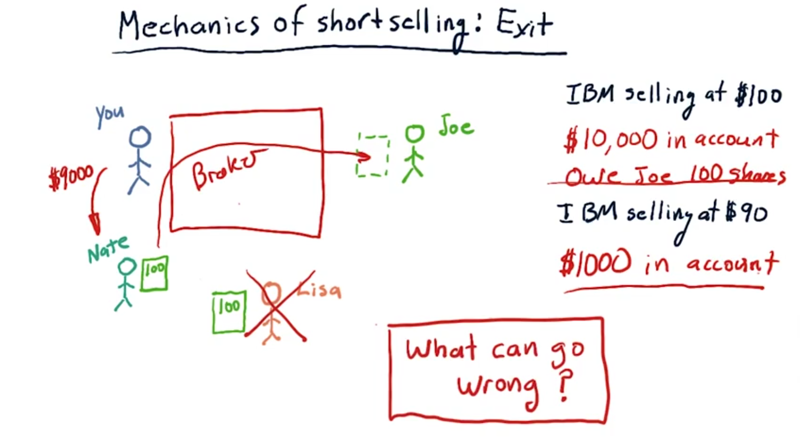 Mechanics of short selling: Exit
You
Joe
Broker
$9000
Nate
100
100
Lisa
IBM selling at $100
$10,000 in account
Owe Joe 100 shares
IBM selling at $90
$1000 in account
What can go
wrong?